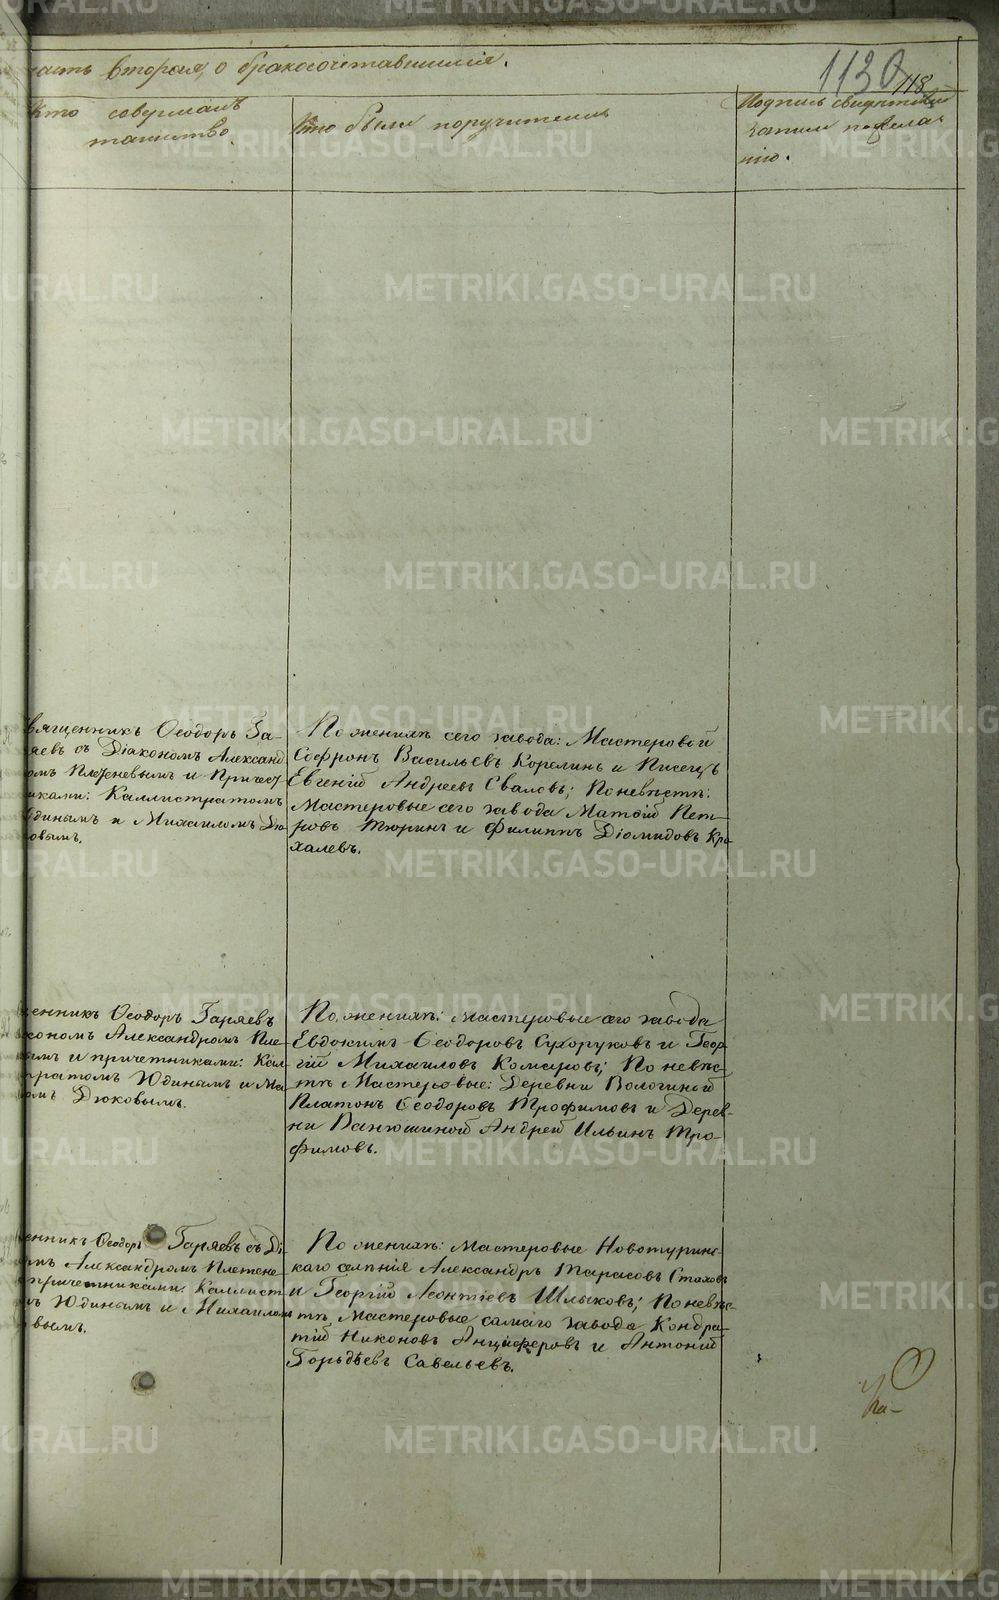 часть вторая, о бракосочетавшихся.
1130
118
Кто совершалъ
таинство.
Кто были поручители
Подпись свидѣтелей
записи по жела-
нію.
священникъ Ѳеодоръ Га-
ряевъ съ Діакономъ Александ
ромъ Плетеневымъ и Причет
никами: Каллистратомъ
Юдинымъ и Михаиломъ Дю
ковымъ.
По женихѣ сего завода: Мастеровой
Софронъ Васильевъ Корелинъ и Писецъ
Евгеній Андреевъ Сваловъ; По невѣстѣ:
Мастеровые сего завода Матѳій Пет-
ровъ Тюринъ и Филиппъ Діомидовъ Кро-
халевъ.
щенникъ Ѳеодоръ Гаряевъ
кономъ Александромъ Пле
вымъ и причетниками: Кал
тратомъ Юдинымъ и Ми
омъ Дюковымъ.
По женихѣ: Мастеровые сего завода
Евдокимъ Ѳеодоровъ Сухоруковъ и Геор
гій Михаиловъ Комаровъ; По невѣс-
тѣ Мастеровые: Деревни Вологиной
Платонъ Ѳеодоровъ Трофимовъ и Дерев-
ни Ванюшиной Андрей Ильинъ Тро-
фимовъ.
щенникъ Ѳеодоръ Гаряевъ съ Ді
омъ Александромъ Плетене
причетниками: Каллист
мъ Юдинымъ и Михаиломъ
вымъ.
По женихѣ: Мастеровые Новотуринс-
каго селенія Александръ Тарасовъ Стаховъ
и Георгій Леонтіевъ Шлыковъ; По невѣс-
тѣ, Мастеровые самаго завода Кондра-
тій Никоновъ Анциферовъ и Антоній
Гордѣевъ Савельевъ.
METRIKI.GASO-URAL.RU